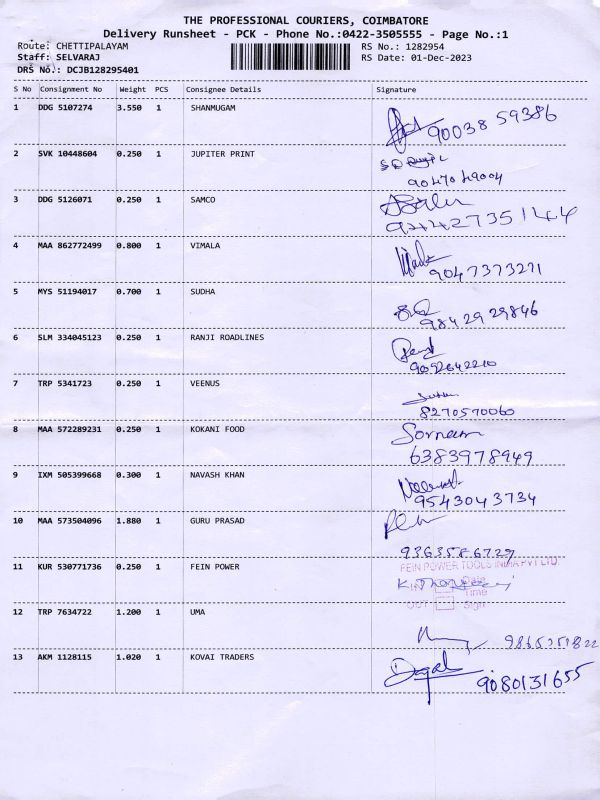 THE PROFESSIONAL COURIERS, COIMBATORE
Delivery Runsheet - PCK - Phone No.:0422-3505555 - Page No.:1
Route: CHETTIPALAYAM RS No.: 1282954
Staff: SELVARAJ RS Date: 01-Dec-2023
DRS No.: DCJB128295401
S No Consignment No Weight PCS Consignee Details Signature
1 DDG 5107274 3.550 1 SHANMUGAM
90038 59386
2 SVK 10448604 0.250 1 JUPITER PRINT
90470 49004
3 DDG 5126071 0.250 1 SAMCO
4 MAA 862772499 0.800 1 VIMALA
9047373271
5 MYS 51194017 0.700 1 SUDHA
98429 29846
6 SLM 334045123 0.250 1 RANJI ROADLINES
9092642210
7 TRP 5341723 0.250 1 VEENUS
8270570060
8 MAA 572289231 0.250 1 KOKANI FOOD
6383978949
9 IXM 505399668 0.300 1 NAVASH KHAN
9543043734
10 MAA 573504096 1.880 1 GURU PRASAD
9363586727
11 KUR 530771736 0.250 1 FEIN POWER
FEIN POWER TOOLS INDIA PVT LTD.
IN Date
Time
OUT Sign
12 TRP 7634722 1.200 1 UMA
13 AKM 1128115 1.020 1 KOVAI TRADERS
9080131655